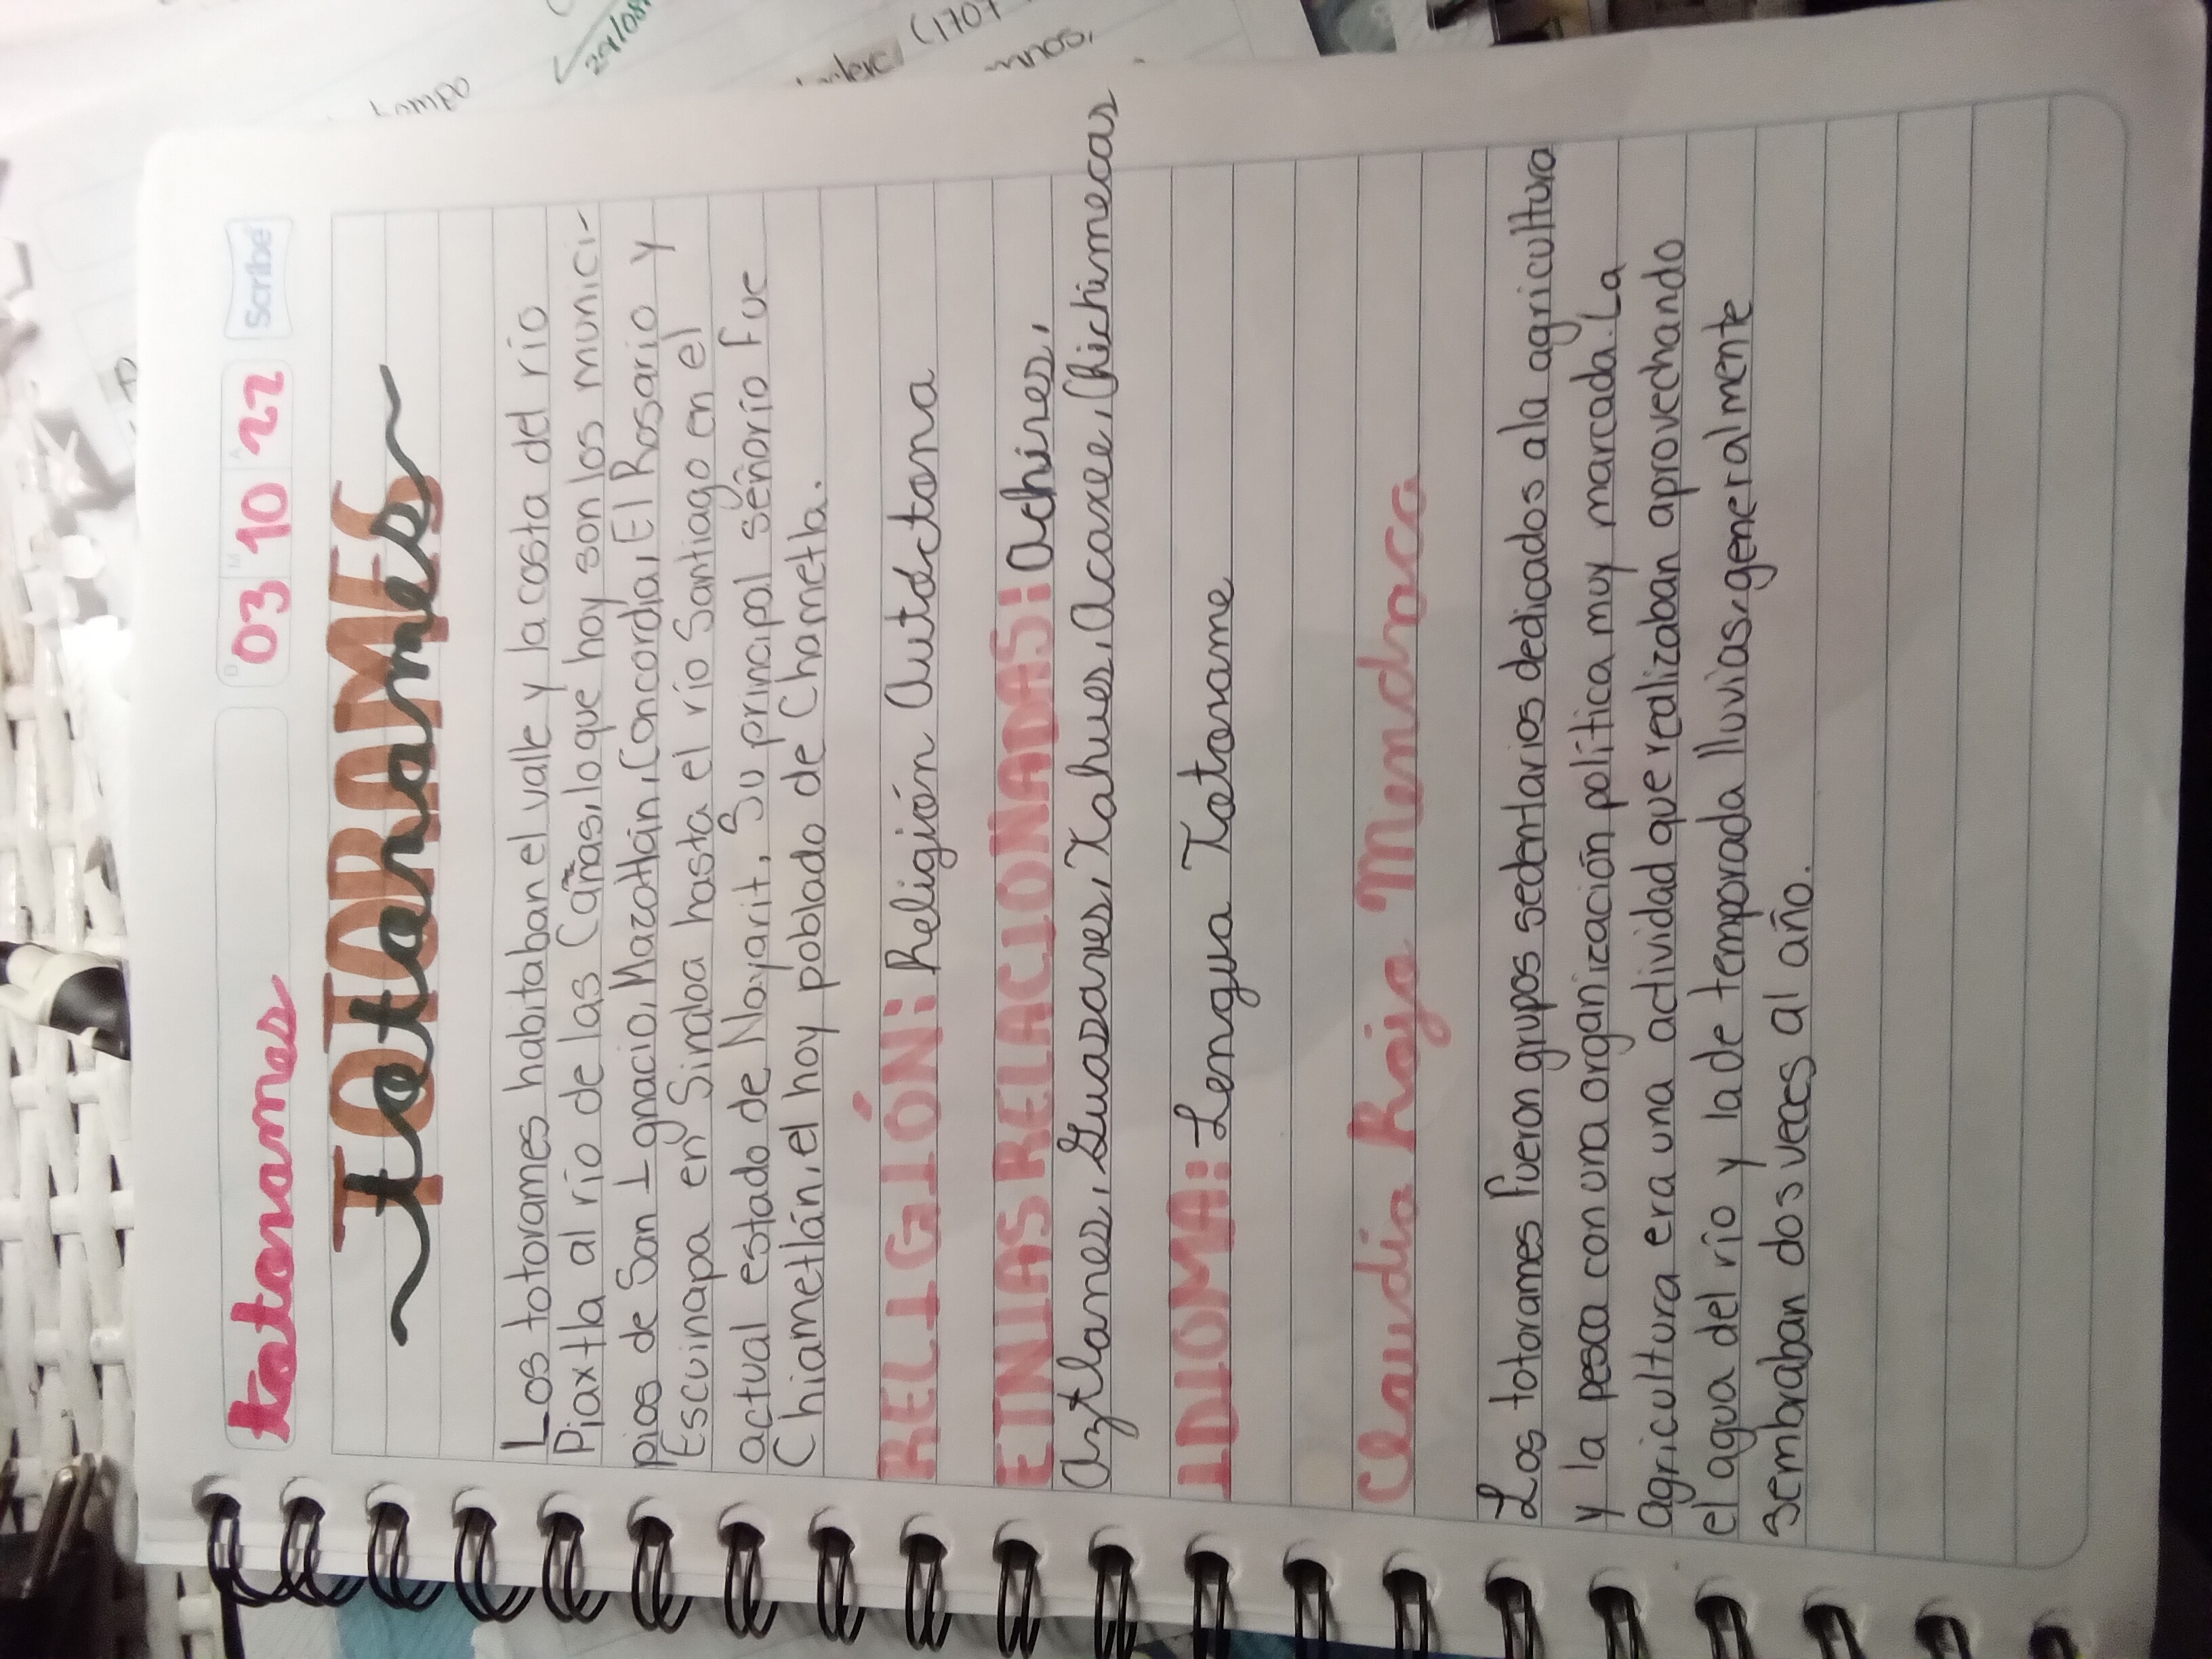 totorames
03 10 22
Scribe
TOTORAMES
totorames
Los totorames habitaban el valle y la costa del río
Piaxtla al río de las Cañas, lo que hoy son los munici-
pios de San Ignacio, Mazatlán, Concordia, El Rosario y
Escuinapa en Sinaloa hasta el río Santiago en el
actual estado de Nayarit. Su principal señorío fue
Chiametlán, el hoy poblado de Chametla.
RELIGIÓN: Religión Autóctona
ETNIAS RELACIONADAS: Achires,
Aztlanes, Guasaves, Tahues, Acaxee, Chichimecas
IDIOMA: Lengua Totorame
Claudia Rioja Mendroca
Los totorames fueron grupos sedentarios dedicados ala agricultura
y la pesca con una organización política muy marcada. La
agricultura era una actividad que realizaban aprovechando
el agua del río y la de temporada lluvias, generalmente
sembraban dos veces al año.
tampo
29/08
(1707